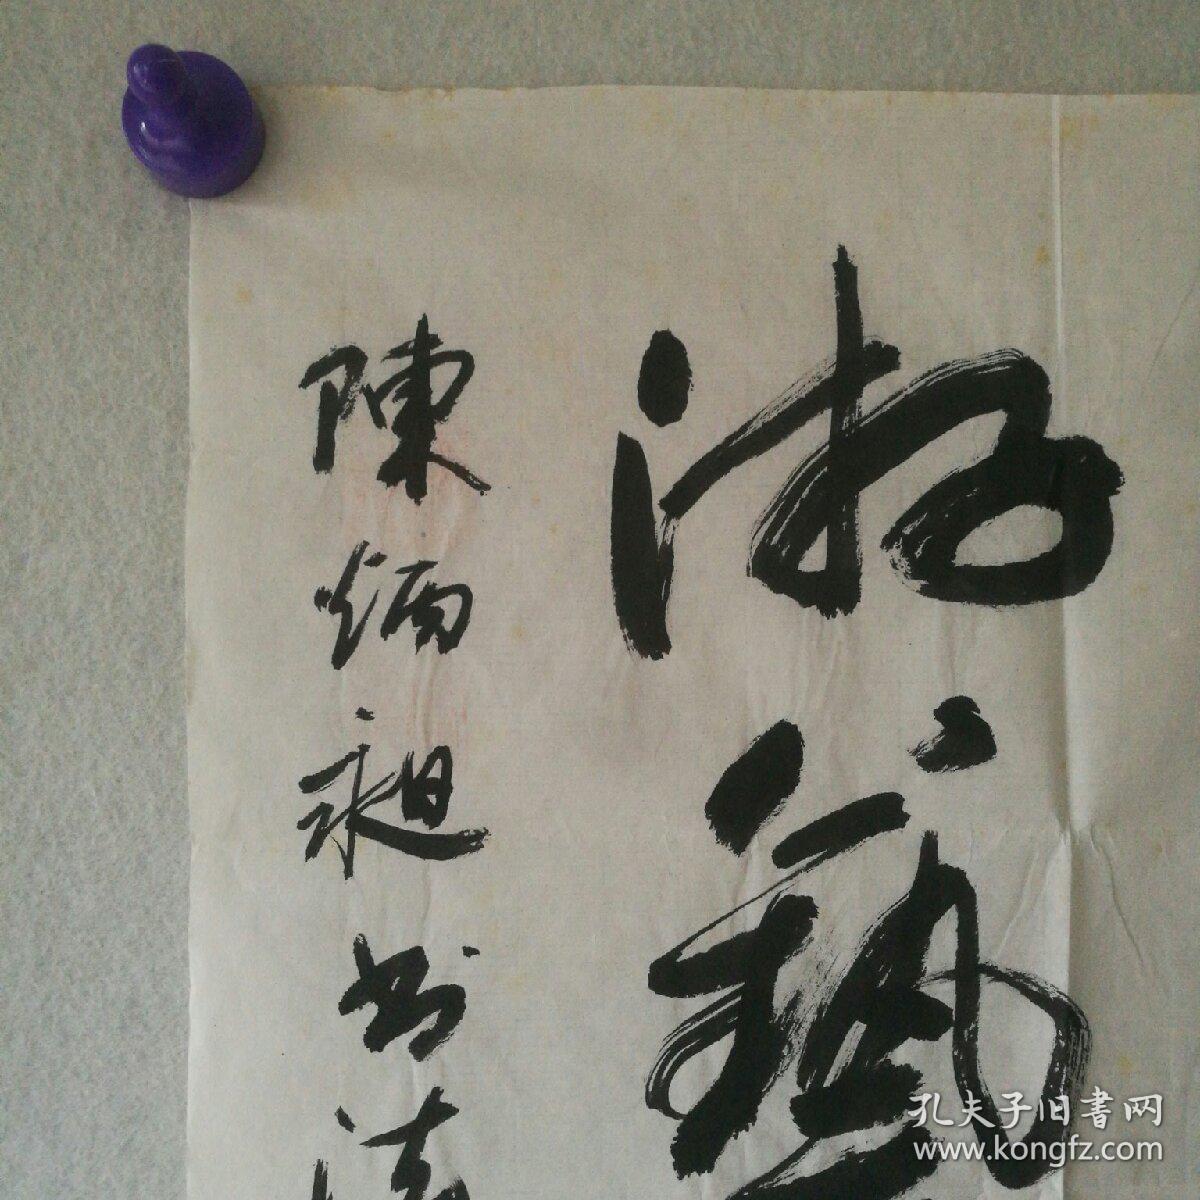 游藝
陳炳昶书法
孔夫子旧書网
www.kongfz.com